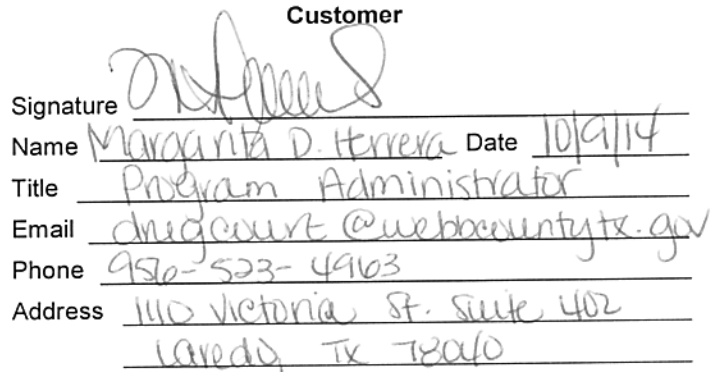 Customer
Signature
Name Margarita D. Herrera Date 10/9/14
Title Program Administrator
Email drugcourt@webbcountytx.gov
Phone 956-523-4963
Address 1110 Victoria St. Suite 402
Laredo, TX 78040